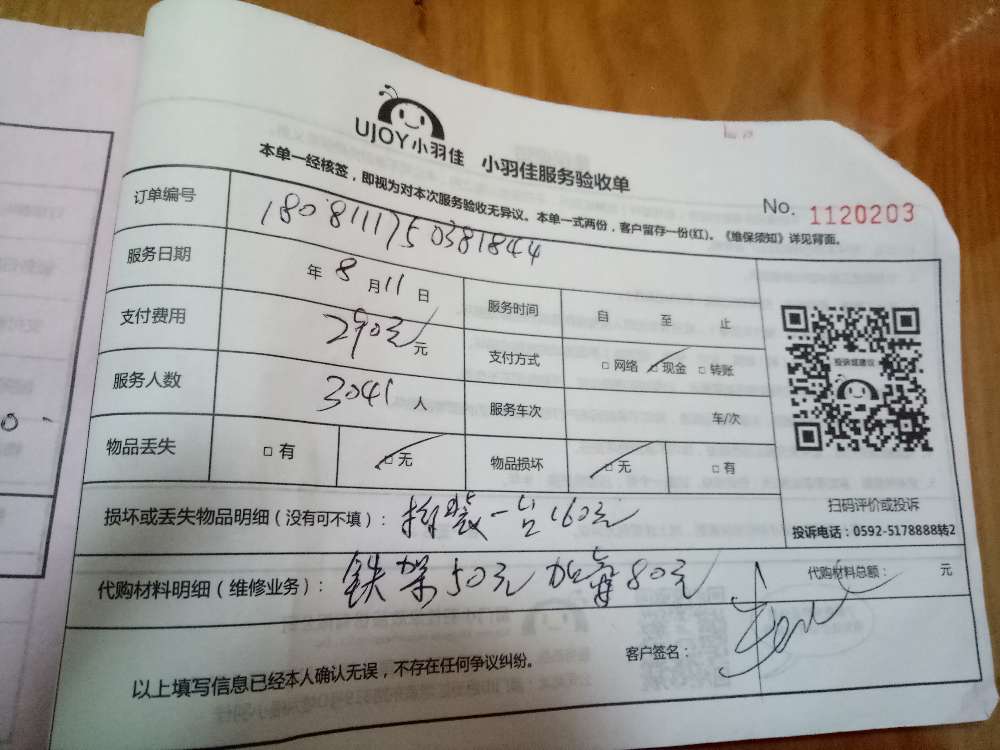 UJOY小羽佳 小羽佳服务验收单
No. 1120203
本单一经核签，即视为对本次服务验收无异议。本单一式两份，客户留存一份(红)。《维保须知》详见背面。
订单编号 1808111750381844
服务日期 年 8 月 11 日 服务时间 自 至 止
支付费用 290元 元 支付方式 □ 网络 □ 现金 □ 转账
服务人数 3041 人 服务车次 车/次
物品丢失 □ 有 □ 无 物品损坏 □ 无 □ 有
投诉或建议
扫码评价或投诉
投诉电话：0592-5178888转2
损坏或丢失物品明细（没有可不填）：拆装一台160元
代购材料明细（维修业务）：铁架50元 加氟80元 代购材料总额： 元
以上填写信息已经本人确认无误，不存在任何争议纠纷。 客户签名：